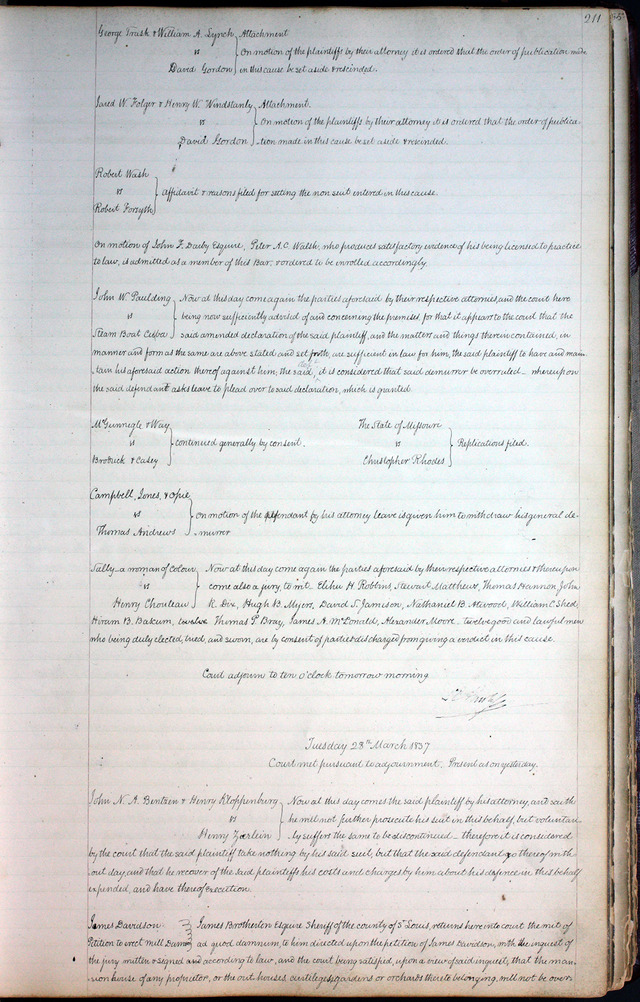 211
George Trask & William A. Lynch } Attachment
vs On motion of the plaintiffs by their attorney it is ordered that the order of publication made
David Gordon in this cause be set aside & rescinded.
Jared W. Folger & Henry W. Windstanly } Attachment.
vs On motion of the plaintiffs by their attorney it is ordered that the order of publica-
David Gordon -tion made in this cause be set aside & rescinded.
Robert Wash
vs } Affidavit & reasons filed for setting the non suit entered in this cause.
Robert Forsyth
On motion of John F. Darby Esquire, Peter A. C. Walsh, who produces satisfactory evidence of his being licensed to practice
to law, is admitted as a member of this Bar, & ordered to be enrolled accordingly.
John W. Paulding } Now at this day come again the parties aforesaid by their respective attornies, and the court here
vs being now sufficiently advised of and concerning the premises for that it appears to the court that the
Steam Boat Cuba said amended declaration of the said plaintiff, and the matters and things therein contained, in
manner and form as the same are above stated and set forth, are sufficient in law for him, the said plaintiff to have and main-
tain his aforesaid action thereof against him, the said, it is considered that said demurrer be overruled – whereupon
the said defendant asks leave to plead over to said declaration, which is granted
McGunnegle & Way
vs } continued generally by consent.
& Casey
The State of Missouri
vs } Replications filed.
Christopher Rhodes
Campbell, Jones, &
vs } On motion of the defendant by his attorney leave is given him to withdraw his general de-
Thomas Andrews -murrer
Sally – a woman of colour } Now at this day come again the parties aforesaid by their respective attornies & thereupon
vs come also a jury to wit – Elihu H. Robbins, Stewart Matthews, Thomas Hannon, John
Henry Chouteau K. Dix, Hugh B. Myers, David S. Jamison, Nathaniel B. Atwood, William C. Shed,
Hiram B. Bakum, twelve Thomas P. Bray, James A. McDonald, Alexander Moore – twelve good and lawful men
who being duly elected, tried, and sworn, are by consent of parties discharged from giving a verdict in this cause.
Court adjourn to ten o'clock tomorrow morning
Tuesday 28th March 1837
Court met pursuant to adjournment. Present as on yesterday.
John N. A. Bentzen & Henry Kloppenburg } Now at this day comes the said plaintiff by his attorney, and saith
vs he will not further prosecute his suit in this behalf, but voluntari-
Henry ly suffers the same to be discontinued – therefore it is considered
by the court that the said plaintiff take nothing by his said suit, but that the said defendant go thereof with-
out day and that he recover of the said plaintiffs his costs and charges by him about his defence in this behalf
expended, and have thereof execution.
James Davidson } James Brotherton Esquire Sheriff of the county of St Louis, returns here into court the writ of
Petition to erect mill Dam ad quod damnum, to him directed upon the petition of James Davidson, with the inquest of
the jury written & signed and according to law, and the court being satisfied, upon a view of said inquest, that the man-
sion house of any proprietor, or the out houses, curtileges, gardens or orchards thereto belonging, will not be over